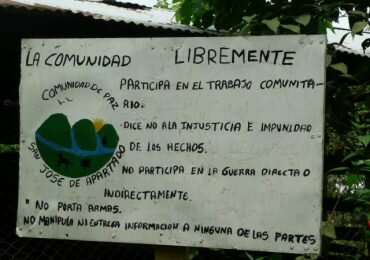 LA COMUNIDAD LIBREMENTE
COMUNIDAD DE PAZ
SAN JOSE DE APARTADO
PARTICIPA EN EL TRABAJO COMUNITA-
RIO.
- DICE NO A LA INJUSTICIA E IMPUNIDAD
DE LOS HECHOS.
NO PARTICIPA EN LA GUERRA DIRECTA O
INDIRECTAMENTE.
* NO PORTA ARMAS.
NO MANIPULA NI ENTREGA INFORMACION A NINGUNA DE LAS PARTES